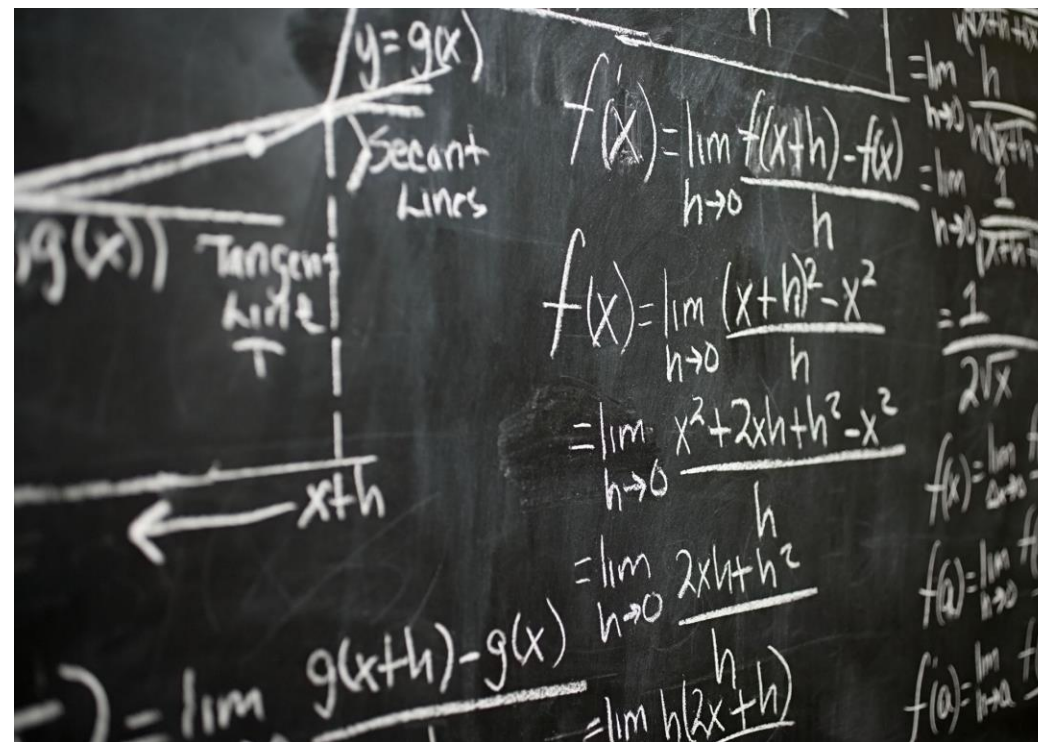 y = g(x)
Secant
Lines
g(x))
Tangent
Line
T
x+h
) = lim g(x+h) - g(x)
h
f'(x) = lim h→0 f(x+h) - f(x) / h
f(x) = lim h→0 (x+h)² - x² / h
= lim h→0 x² + 2xh + h² - x² / h
= lim h→0 2xh + h² / h
= lim h(2x+h)
= lim h→0 h
= lim h→0 1
= 1 / 2√x
f(x) = lim
f(a) = lim h→0
f(a) = lim h→a